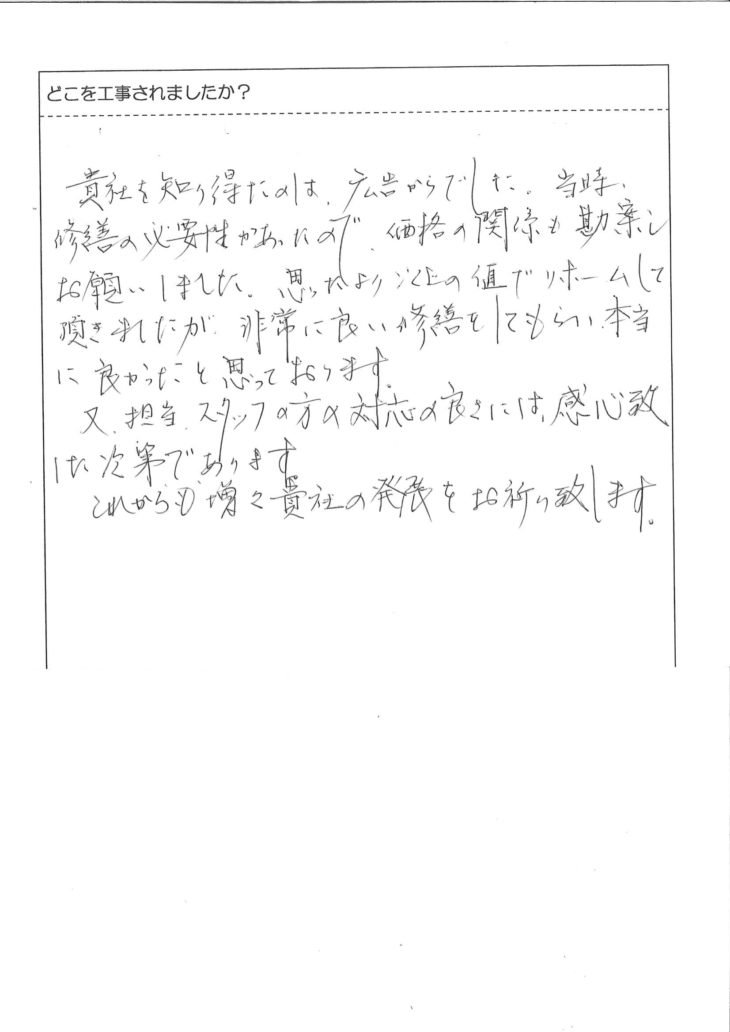 どこを工事されましたか？
貴社を知り得たのは、広告からでした。当時、
修繕の必要性があったので、価格の関係も勘案し
お願いしました。思ったより以上の値でリホームして
頂きましたが、非常に良い修繕をしてもらい、本当
に良かったと思っております。
又、担当、スタッフの方の対応の良さには、感心致
した次第であります
これからも増々貴社の発展をお祈り致します。